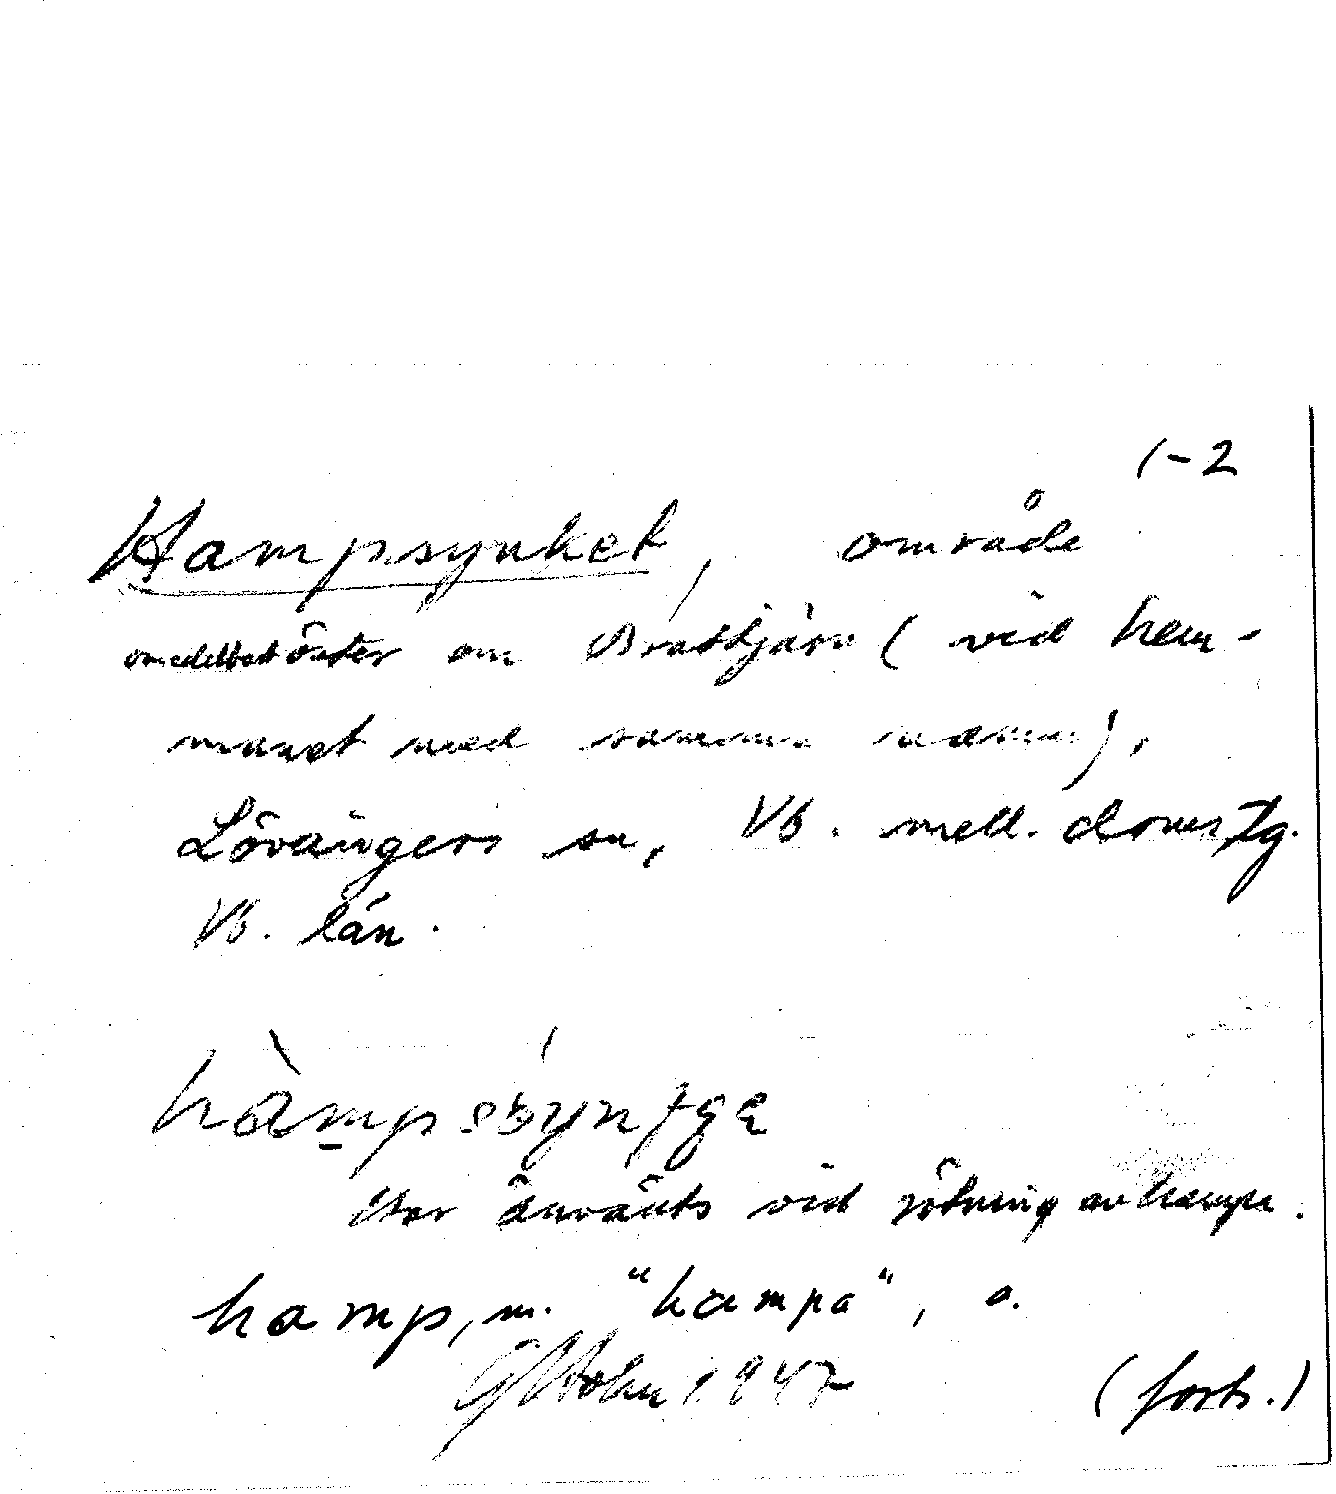 1-2
Hampsynket, område
omedelbart öster om Brattjärn (vid hem-
manet med samma namn),
Lövångers sn, Vb. mell. domstg.
Vb. län.
Har använts vid rötning av hampa.
hamp, m. "hampa", o.
G Holm 1947
(forts.)